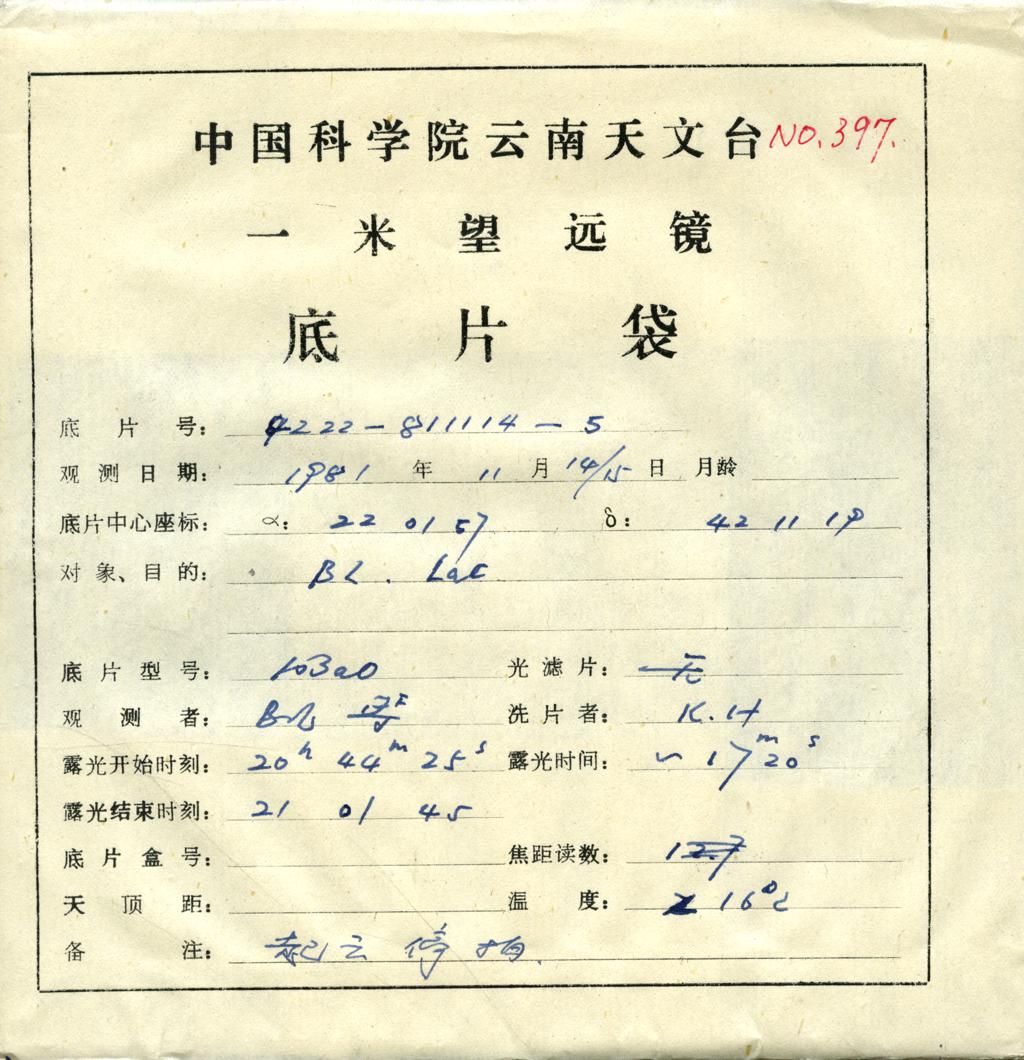 中国科学院云南天文台 NO.397.
一米望远镜
底片袋
底片号: 4222-811114-5
观测日期: 1981年11月14/15日 月龄
底片中心座标: α: 22 01 57 δ: 42 11 19
对象、目的: BL. Lac
底片型号: 103aO 光滤片: 无
观测者: 洗片者: K.H
露光开始时刻: 20h 44m 25s 露光时间: 17m 20s
露光结束时刻: 21 01 45
底片盒号: 焦距读数: 12.7
天顶距: 温度: 16°C
备注: 起云停拍.